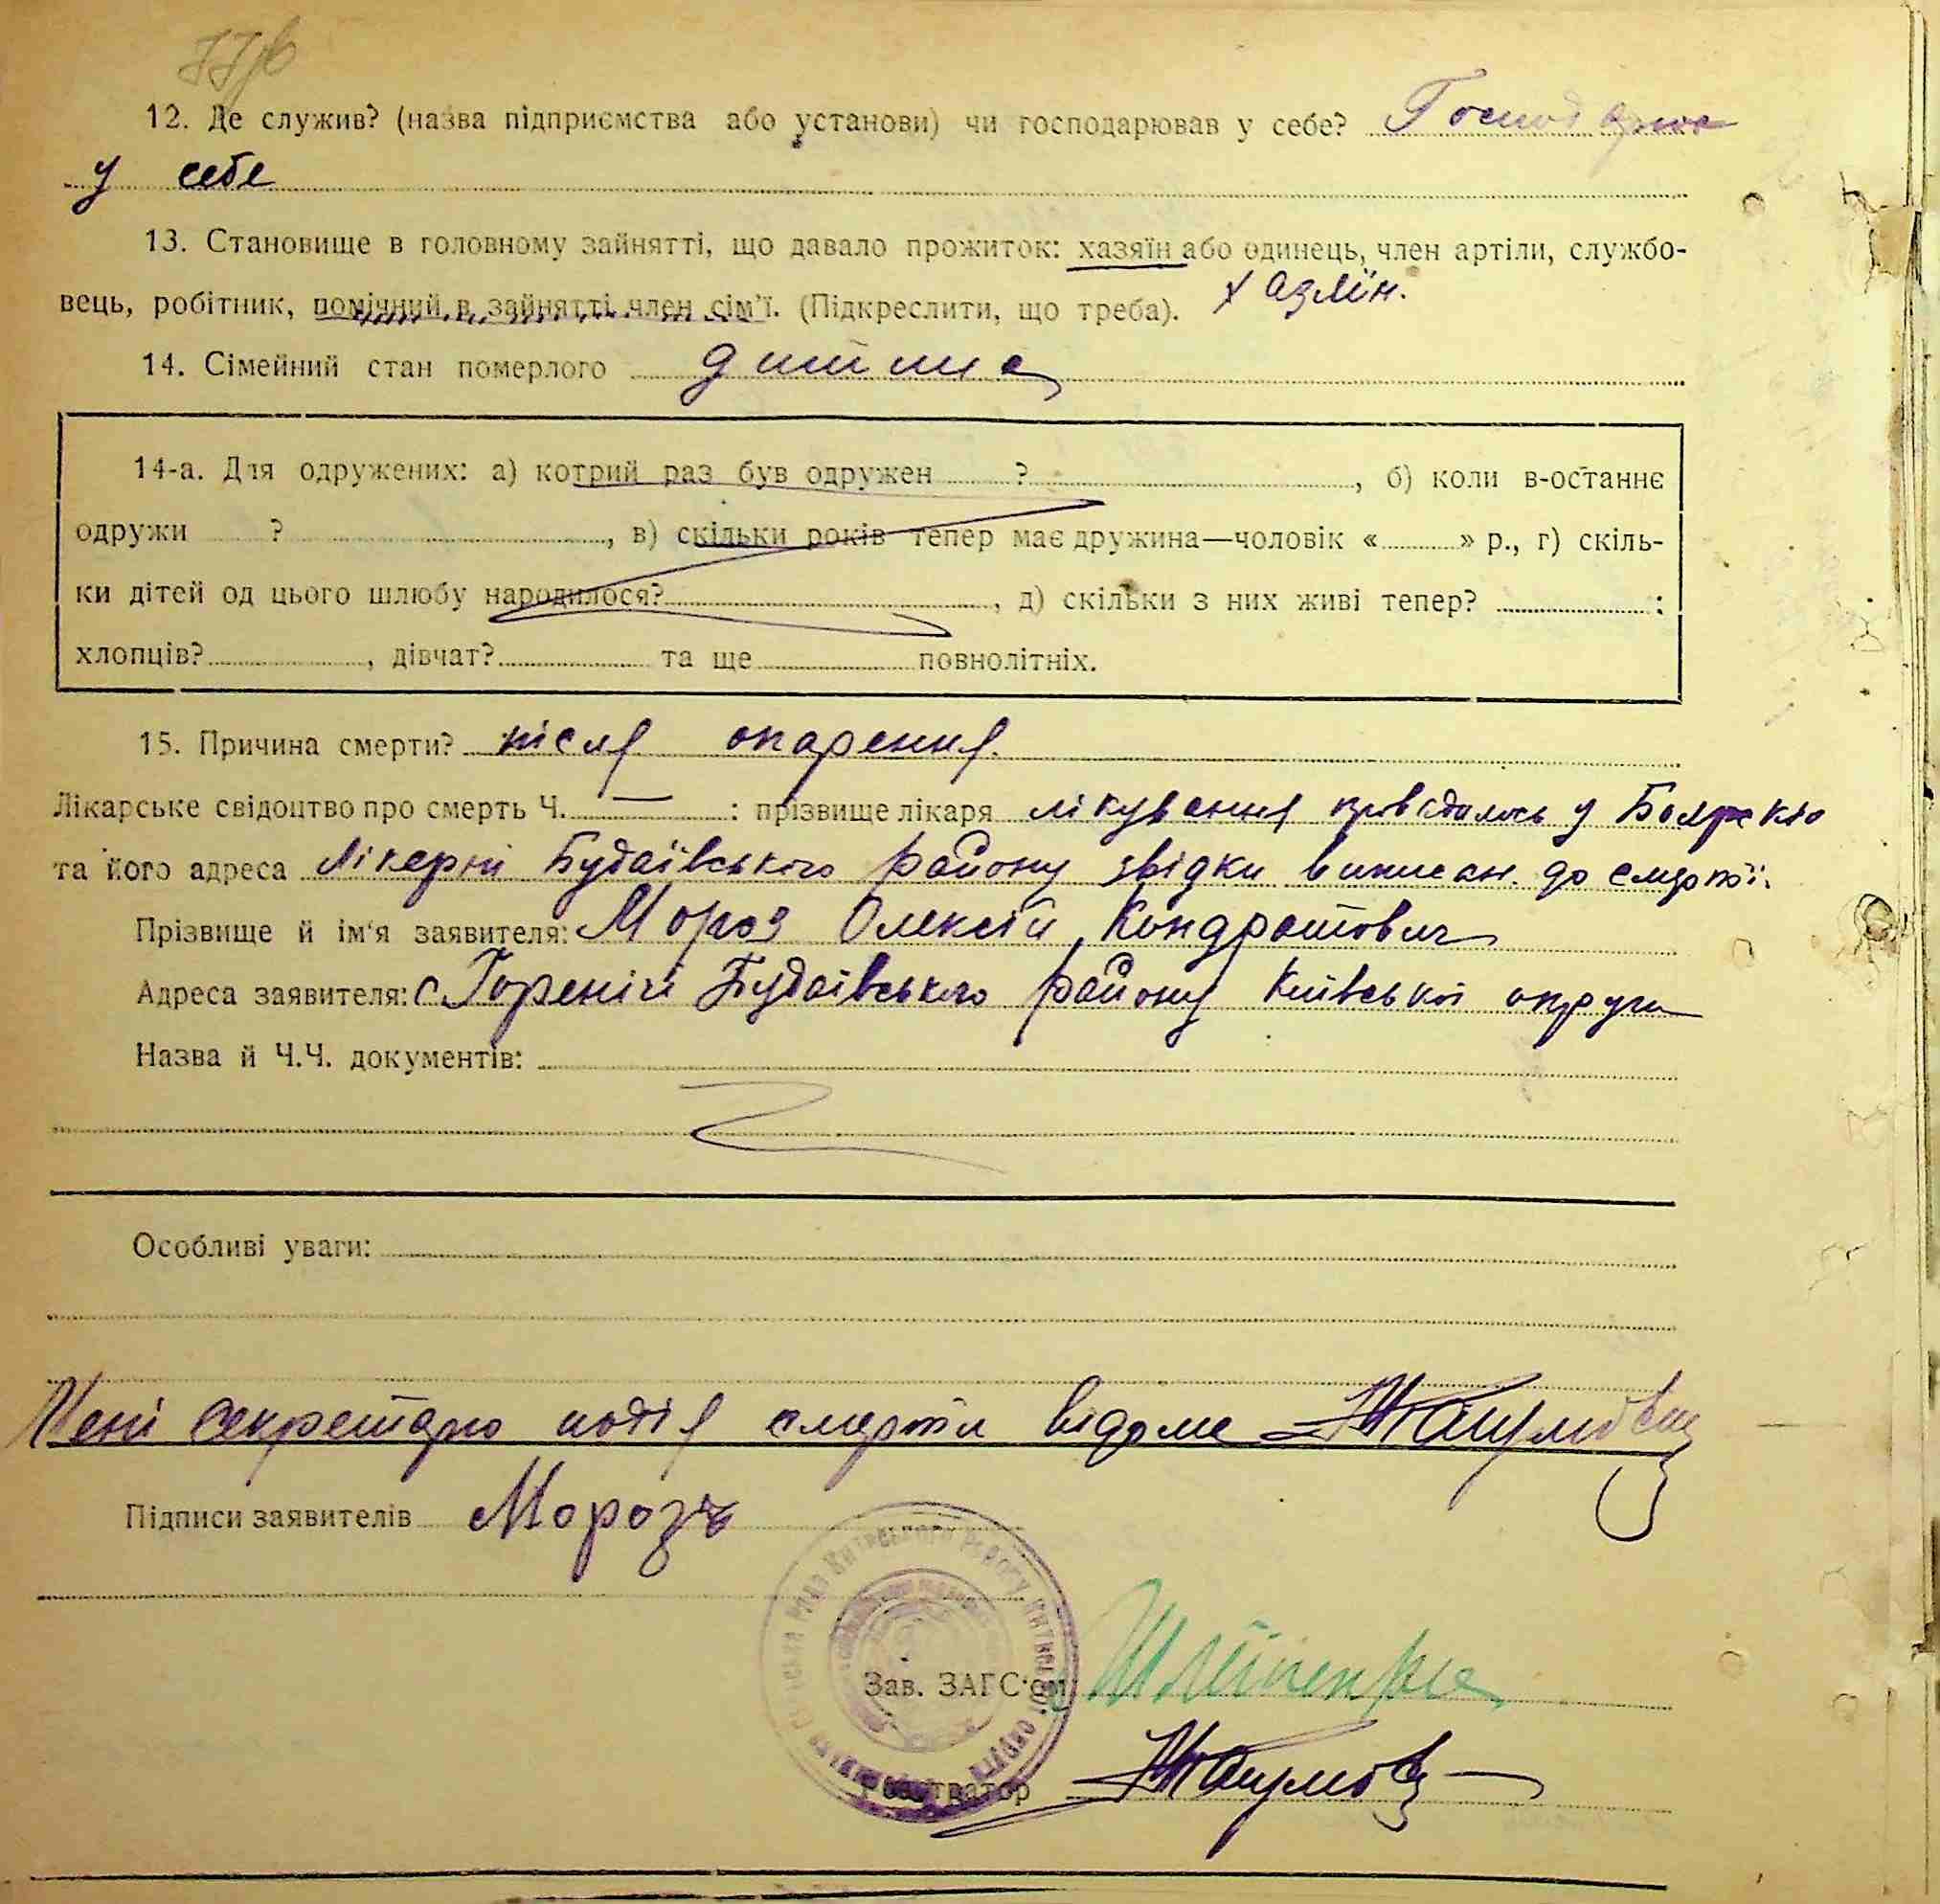 12. Де служив? (назва підприємства або установи) чи господарював у себе? Господарює
у себе
13. Становище в головному зайнятті, що давало прожиток: хазяїн або одинець, член артіли, службо-
вець, робітник, помічний в зайнятті член сім'ї. (Підкреслити, що треба). хазяїн.
14. Сімейний стан померлого дитина
14-а. Для одружених: а) котрий раз був одружен ? , б) коли в-останнє
одружи ? , в) скільки років тепер має дружина—чоловік « » р., г) скіль-
ки дітей од цього шлюбу народилося? , д) скільки з них живі тепер? :
хлопців? , дівчат? та ще повнолітніх.
15. Причина смерти? після опарення.
Лікарське свідоцтво про смерть Ч. — : прізвище лікаря лікування провадилось у
та його адреса Лікарні Будаївського району звідки виписан. до смерті.
Прізвище й ім'я заявителя: Мороз Олексій Кондратович
Адреса заявителя: с. Горенічі Будаївського району Київської округи
Назва й Ч.Ч. документів:
Особливі уваги:
Мені секретарю подія смерти відома
Підписи заявителів Морозъ
Зав. ЗАГС'ом
Реєстратор